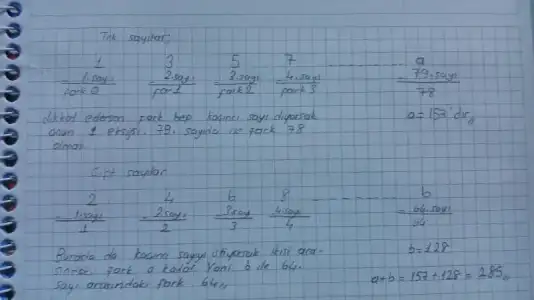 Tek sayılar;
1 3 5 7 ........ a
- 1.sayı - 2.sayı - 3.sayı - 4.sayı - 79.sayı
fark 0 fark 1 fark 2 fark 3 78
Dikkat edersen fark hep kaçıncı sayı diyorsak a = 157'dir,,
onun 1 eksiği. 79. sayıda ise fark 78
olmalı
Çift sayılar
2 4 6 8 ........ b
- 1.sayı - 2.sayı - 3.sayı 4.sayı - 64.sayı
1 2 3 4 64
Burada da kaçıncı sayıyı istiyorsak ikisi ara- b = 128
sındaki fark o kadar. Yani b ile 64.
sayı arasındaki fark 64,, a+b = 157+128 = 285,,